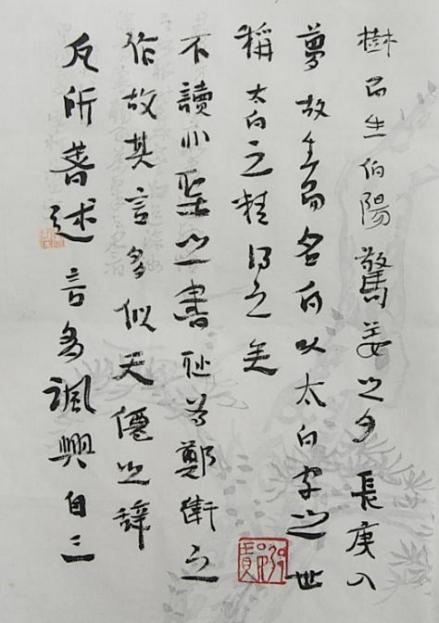 樹而生伯陽驚姜之夕長庚入
夢故生而名白以太白字之世
稱太白之精得之矣
不讀非聖之書耻為鄭衛之
作故其言多似天僊之辭
凡所著述言多諷興自三